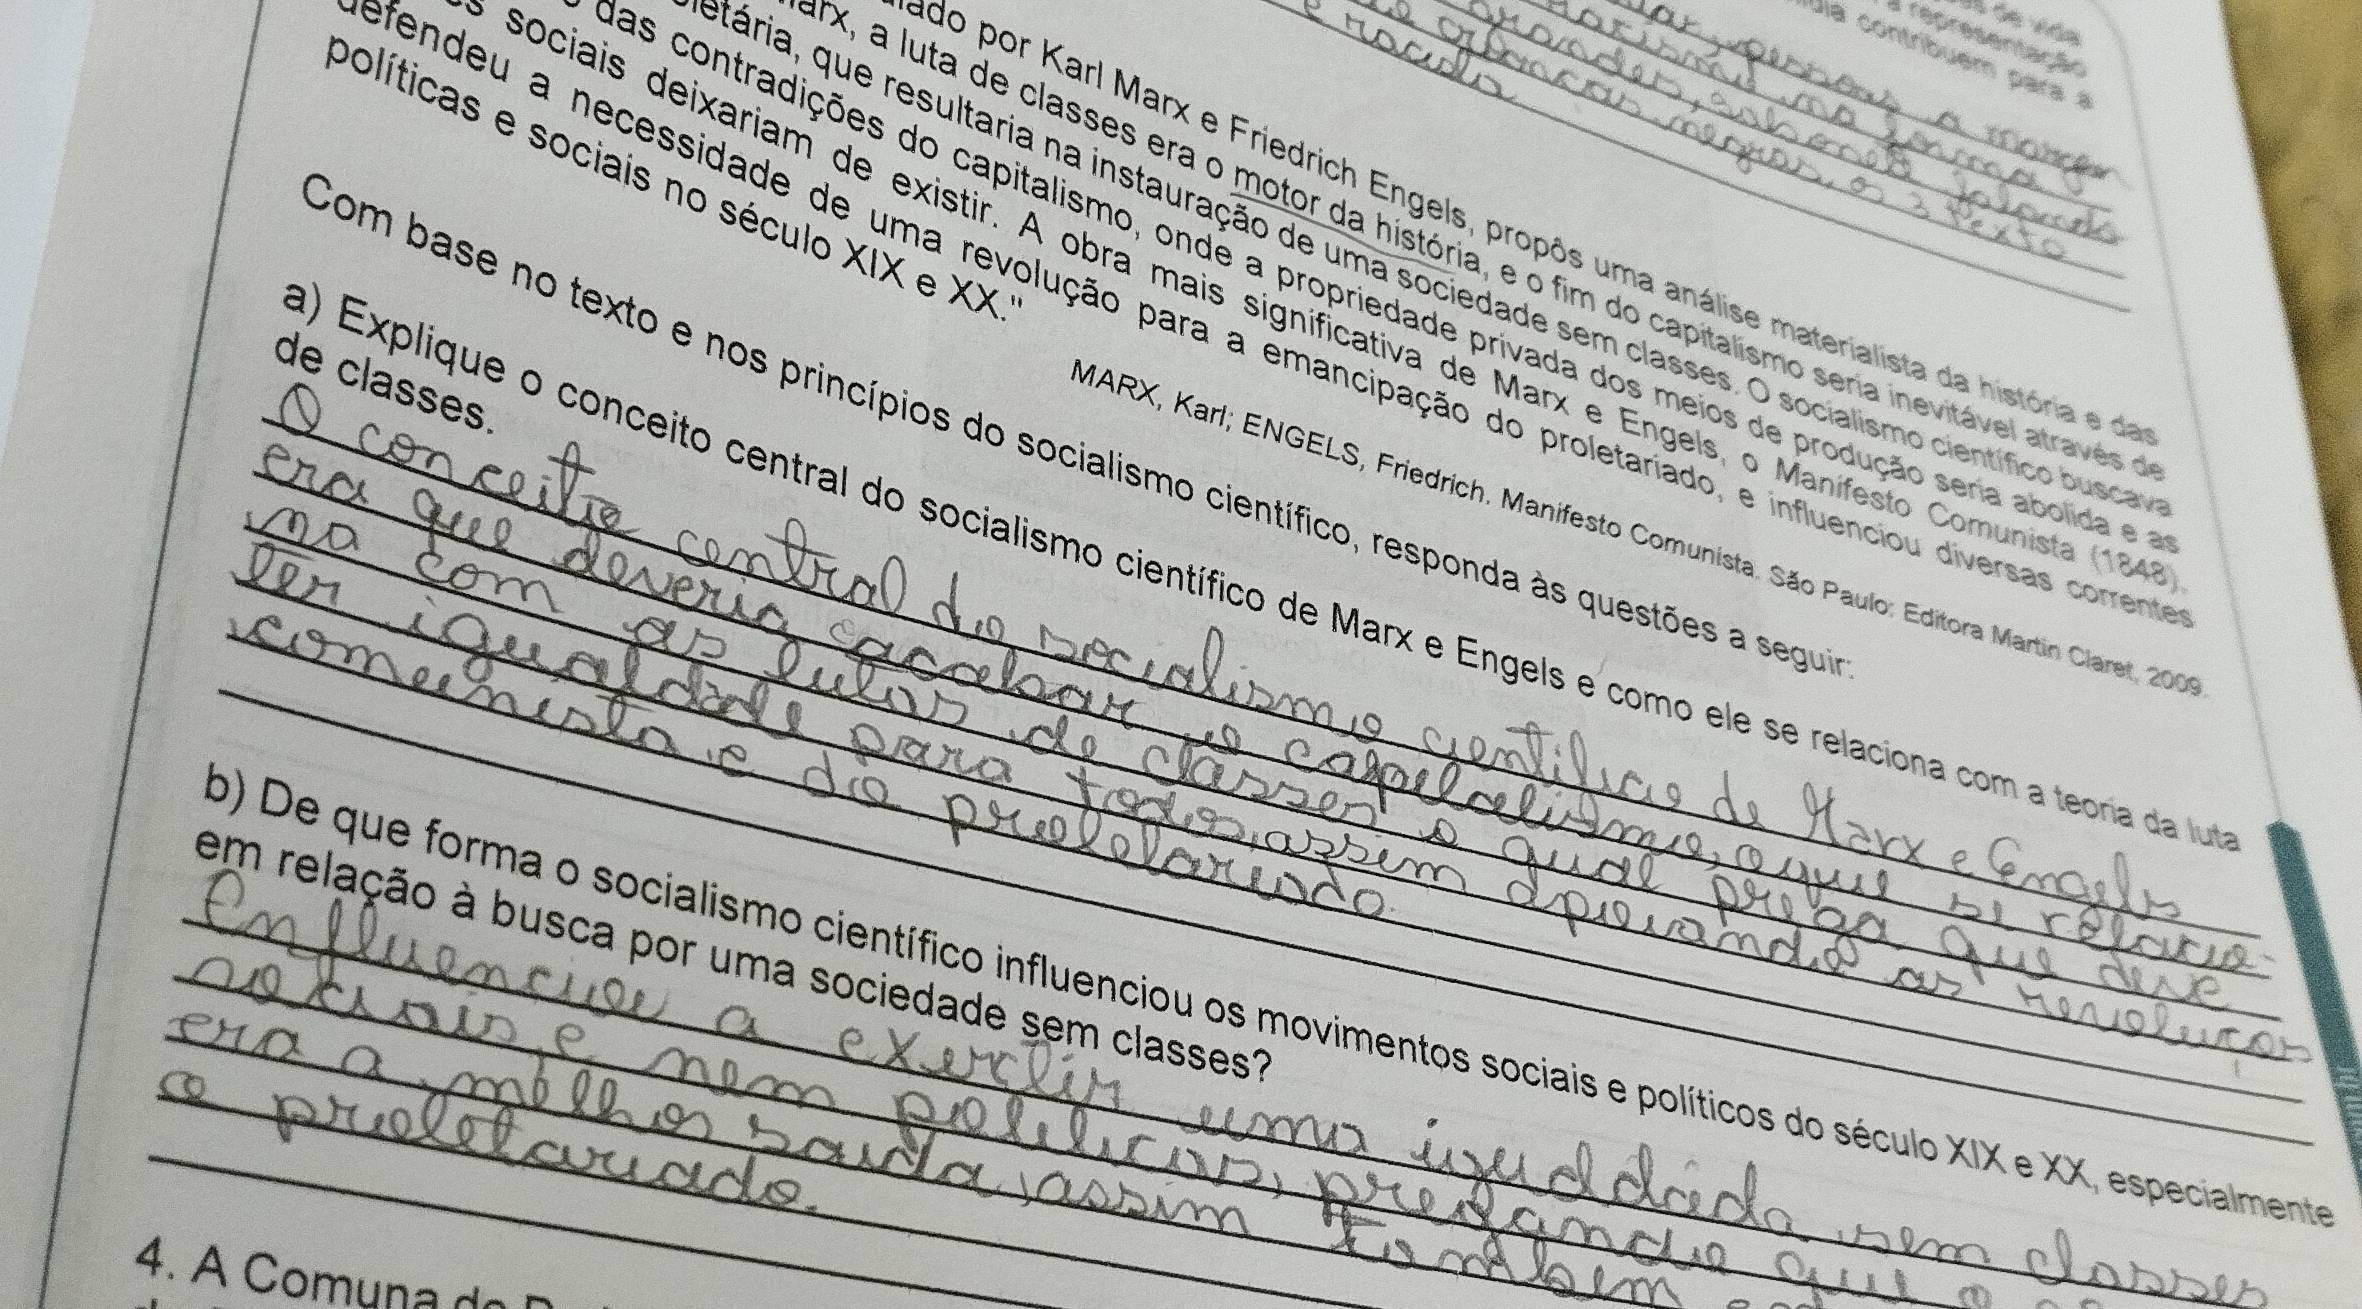 s de vida
a representação
dia contribuem para a
a margem
forma
falando
negras, os 3 texto
e racula
lado por Karl Marx e Friedrich Engels, propôs uma análise materialista da história e das
Marx, a luta de classes era o motor da história, e o fim do capitalismo seria inevitável através de
letária, que resultaria na instauração de uma sociedade sem classes. O socialismo científico buscava
das contradições do capitalismo, onde a propriedade privada dos meios de produção seria abolida e as
es sociais deixariam de existir. A obra mais significativa de Marx e Engels, o Manifesto Comunista (1848),
defendeu a necessidade de uma revolução para a emancipação do proletariado, e influenciou diversas correntes
políticas e sociais no século XIX e XX."
MARX, Karl; ENGELS, Friedrich. Manifesto Comunista. São Paulo: Editora Martin Claret, 2009.
Com base no texto e nos princípios do socialismo científico, responda às questões a seguir:
a) Explique o conceito central do socialismo científico de Marx e Engels e como ele se relaciona com a teoria da luta
de classes.
O conceito central do socialismo cientifico de Marx e Engels
era que deveria acabar o capitalismo, o que si relacio-
na com as lutas de classes o qual prega que deve
ter igualdade para todos, assim apoiando as revoluços
comunista e do proletariado.
b) De que forma o socialismo científico influenciou os movimentos sociais e políticos do século XIX e XX, especialmente
em relação à busca por uma sociedade sem classes?
Enfluenciou a exerctir uma igualdade sem classes
sociais e nem politicas, pregando que o
era a melhor saida, assim tombem
o proletariado.
4. A Comuna de